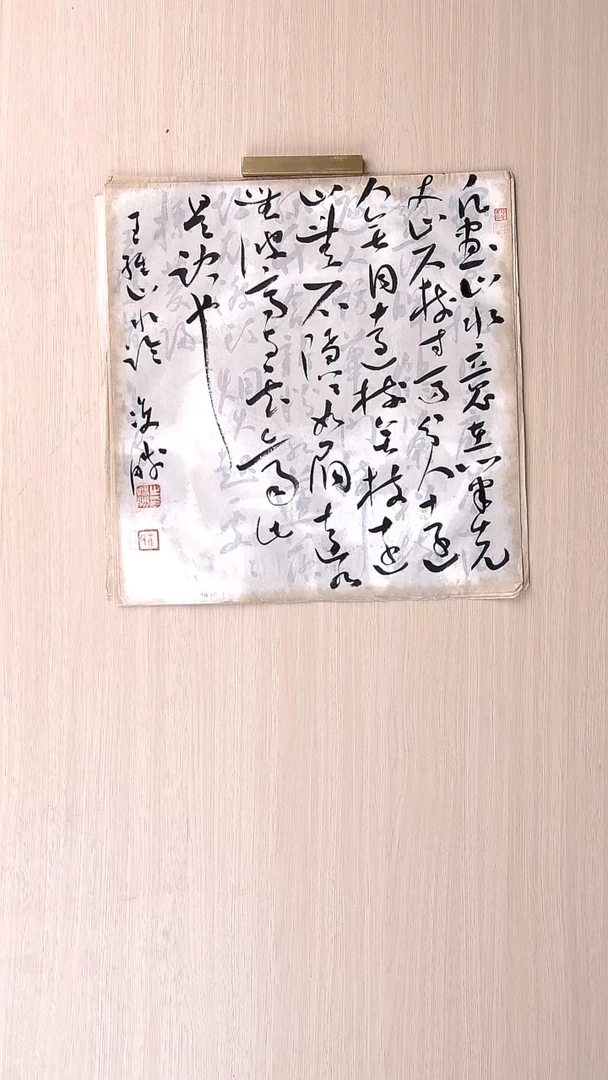 凡畫山水意在筆先
丈山尺樹寸馬分人遠
人無目遠樹無枝遠
山無石隱隱如眉遠水
無波高與雲齊此
是訣也
王維山水論